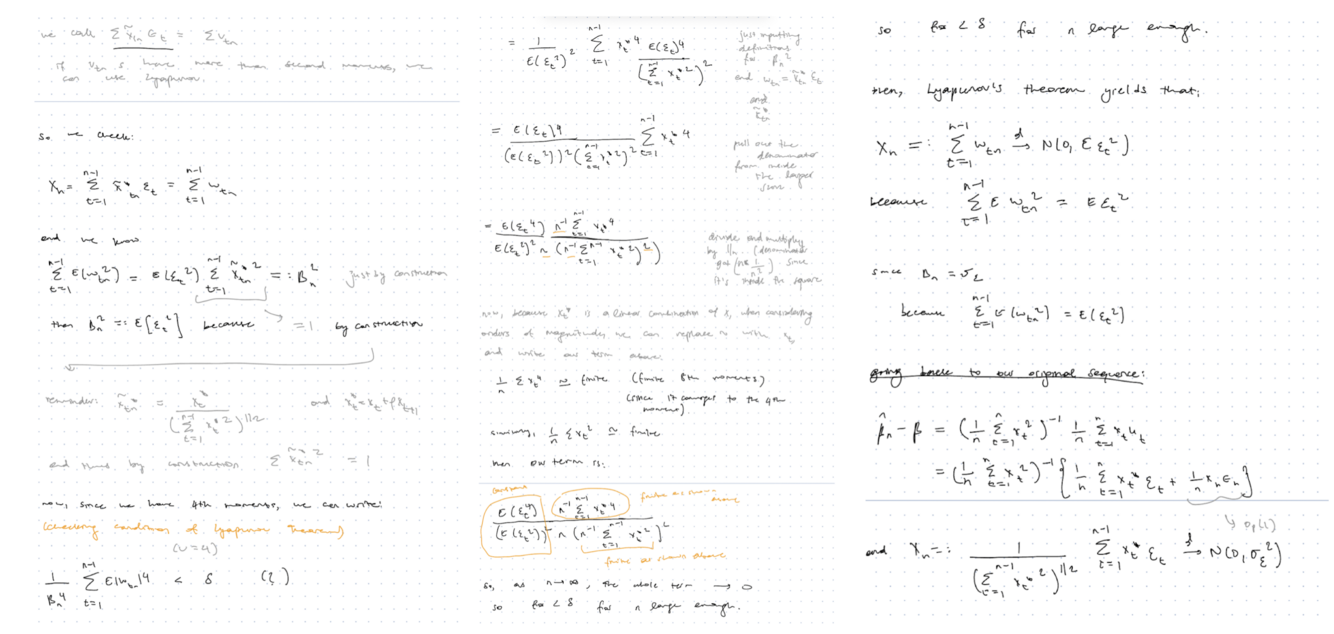 we call ∑ x̃*_tn ε_t = ∑ v_tn
if v_tn s have more than second moments, we
can use Lyapunov.
so we check:
X_n = ∑_{t=1}^{n-1} x̃*_tn ε_t = ∑_{t=1}^{n-1} w_tn
and we know
∑_{t=1}^{n-1} E(w_tn²) = E(ε_t²) ∑_{t=1}^{n-1} x̃*_tn² =: B_n² just by construction
then B_n² =: E[ε_t²] because → = 1 by construction
reminder: x̃*_tn = x*_t / (∑_{t=1}^{n-1} x*_t²)^{1/2} and x*_t = x_t + ρx_{t+1}
and thus by construction ∑ x̃*_tn² = 1
now, since we have 4th moments, we can write:
(checking condition of Lyapunov Theorem)
(ν=4)
1/B_n⁴ ∑_{t=1}^{n-1} E|w_tn|⁴ < δ (?)
= 1/E(ε_t²)² ∑_{t=1}^{n-1} x*_t⁴ E(ε_t)⁴ / (∑_{t=1}^{n-1} x*_t²)²
just inputting
definitions
for B_n²
and w_tn = x̃*_tn ε_t
and
= E(ε_t)⁴ / (E(ε_t²))² (∑_{t=1}^{n-1} x*_t²)² ∑_{t=1}^{n-1} x*_t⁴
pull out the
denominator
from inside
the larger
sum
= E(ε_t⁴) n⁻¹ ∑_{t=1}^{n-1} x*_t⁴ / E(ε_t²)² n (n⁻¹ ∑_{t=1}^{n-1} x*_t²)²
divide and multiply
by 1/n. (denominator
got 1/n² since
it's inside the square
now, because x*_t is a linear combination of s, when considering
orders of magnitude, we can replace with x_t,
and write our term above:
1/n ∑ x_t⁴ ≃ finite (finite 8th moments)
(since it converges to the 4th
moment)
similarly, 1/n ∑ x_t² ≃ finite
then our term is:
constant
finite as shown
above
E(ε_t⁴) n⁻¹ ∑_{t=1}^{n-1} x*_t⁴ / (E(ε_t²))² n (n⁻¹ ∑_{t=1}^{n-1} x*_t²)²
finite as shown above
so, as n→∞, the whole term → 0
so for < δ for n large enough.
so for < δ for n large enough.
then, Lyapunov's theorem yields that;
X_n =: ∑_{t=1}^{n-1} w_tn →d N(0, E ε_t²)
because ∑_{t=1}^{n-1} E w_tn² = E ε_t²
since B_n = σ_ε
because ∑_{t=1}^{n-1} (w_tn²) = E(ε_t²)
going back to our original sequence:
β̂_n − β = (1/n ∑_{t=1}^{n} x_t²)⁻¹ 1/n ∑_{t=1}^{n} x_t u_t
= (1/n ∑_{t=1}^{n} x_t²)⁻¹ {1/n ∑_{t=1}^{n} x*_t ε_t + 1/n x_n ε_n}
↳ o_p(1)
and X_n =: 1/(∑_{t=1}^{n-1} x*_t²)^{1/2} ∑_{t=1}^{n-1} x*_t ε_t →d N(0, σ_ε²)